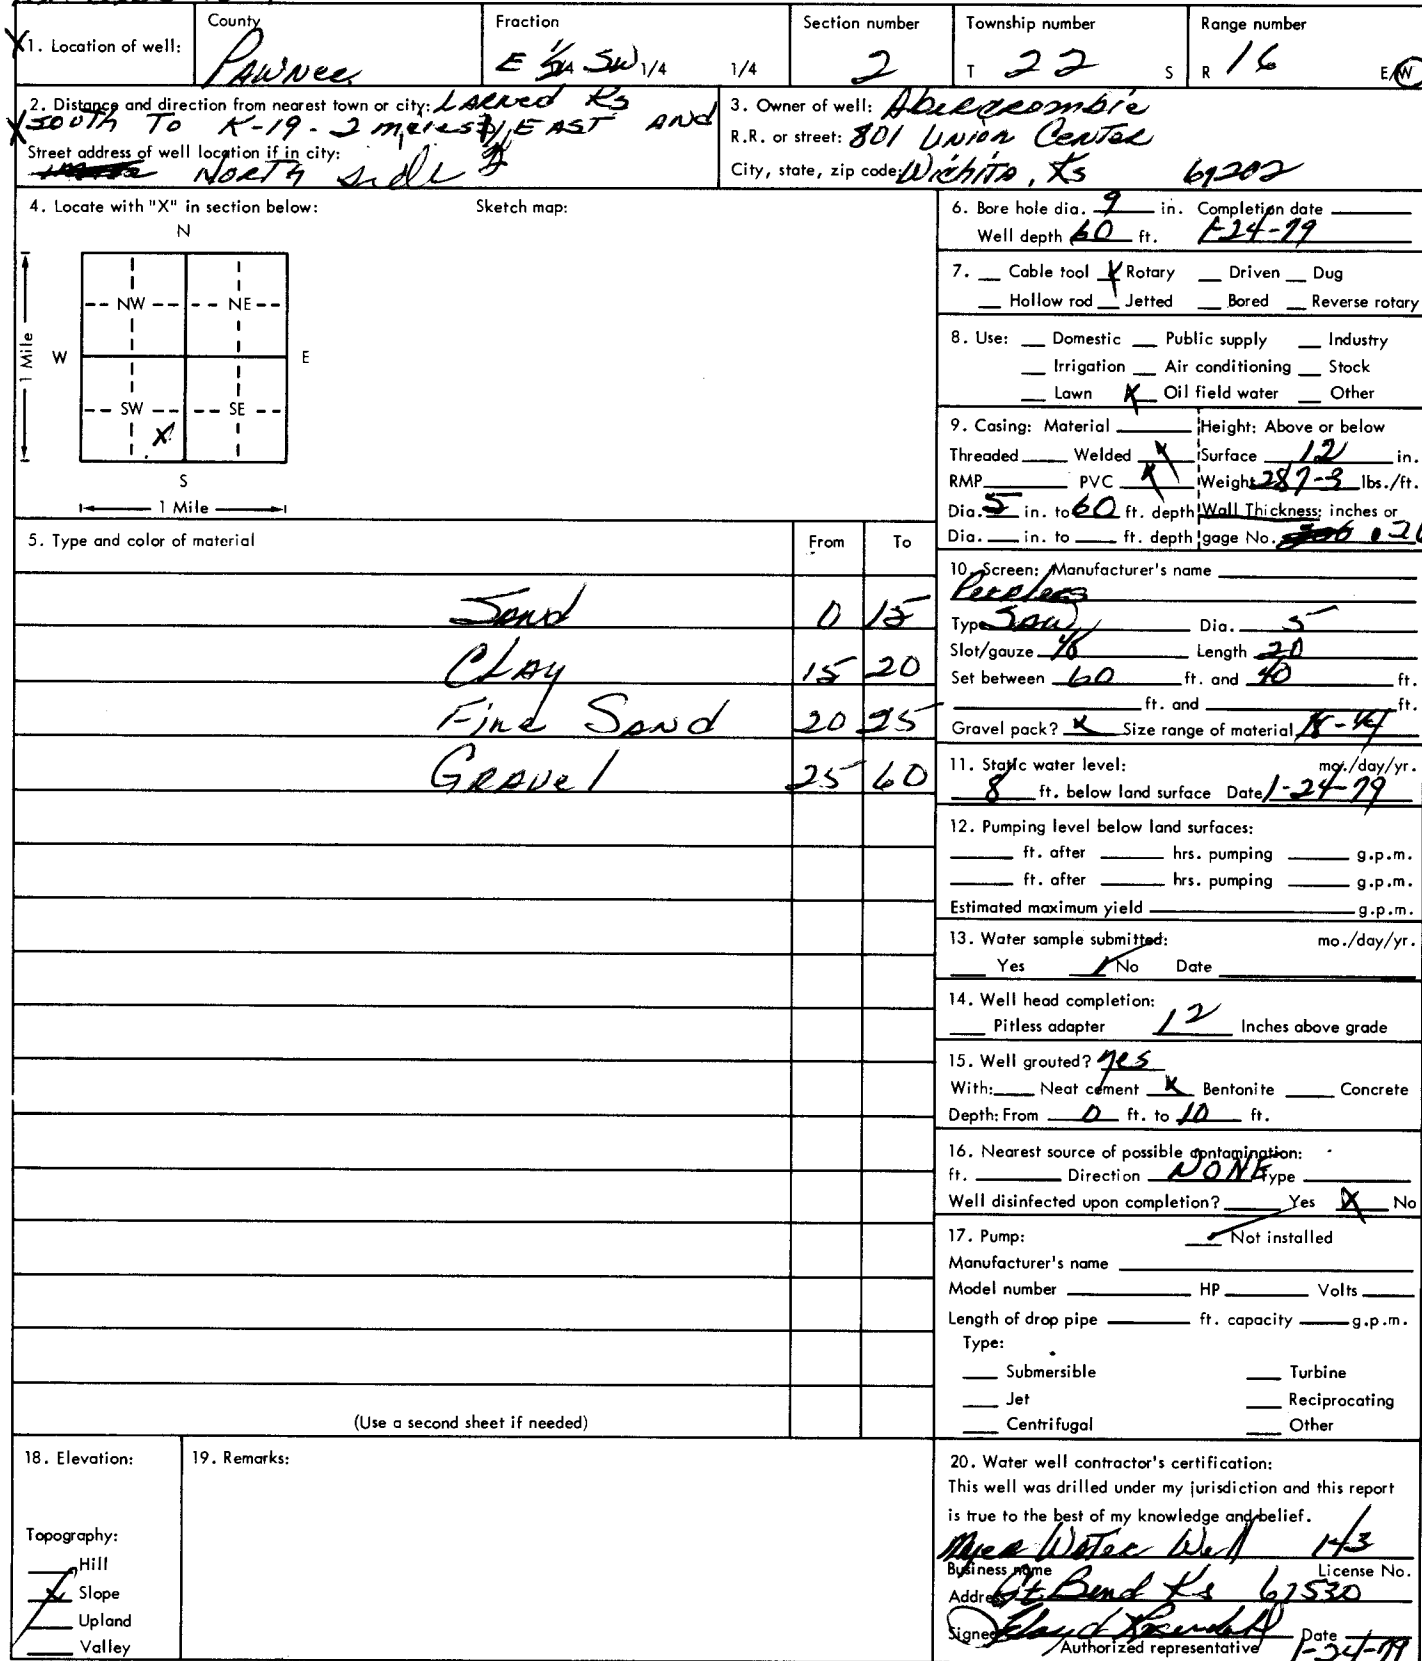 1. Location of well:
County
Pawnee
Fraction
E 1/2 SW 1/4 1/4
Section number
2
Township number
T 22 S
Range number
R 16 E/W
2. Distance and direction from nearest town or city: Larned Ks
South To K-19 - 2 miles EAST AND
Street address of well location if in city:
North side
3. Owner of well: Abercrombie
R.R. or street: 801 Union Center
City, state, zip code: Wichita, Ks 67202
4. Locate with "X" in section below:
Sketch map:
N
NW NE
W E
1 Mile
SW SE
X
S
1 Mile
5. Type and color of material From To
Sand 0 15
CLAY 15 20
Fine Sand 20 25
Gravel 25 60
(Use a second sheet if needed)
6. Bore hole dia. 9 in. Completion date
Well depth 60 ft. 1-24-79
7. Cable tool X Rotary Driven Dug
Hollow rod Jetted Bored Reverse rotary
8. Use: Domestic Public supply Industry
Irrigation Air conditioning Stock
Lawn X Oil field water Other
9. Casing: Material Height: Above or below
Threaded Welded X Surface 12 in.
RMP PVC X Weight 287-3 lbs./ft.
Dia. 5 in. to 60 ft. depth Wall Thickness: inches or
Dia. in. to ft. depth gage No.
10. Screen: Manufacturer's name
Peerless
Type Saw Dia. 5
Slot/gauze Length 20
Set between 60 ft. and 40 ft.
ft. and ft.
Gravel pack? X Size range of material
11. Static water level: mo./day/yr.
8 ft. below land surface Date 1-24-79
12. Pumping level below land surfaces:
ft. after hrs. pumping g.p.m.
ft. after hrs. pumping g.p.m.
Estimated maximum yield g.p.m.
13. Water sample submitted: mo./day/yr.
Yes No Date
14. Well head completion:
Pitless adapter 12 Inches above grade
15. Well grouted? yes
With: Neat cement X Bentonite Concrete
Depth: From 0 ft. to 10 ft.
16. Nearest source of possible contamination:
ft. Direction NONE Type
Well disinfected upon completion? Yes X No
17. Pump: Not installed
Manufacturer's name
Model number HP Volts
Length of drop pipe ft. capacity g.p.m.
Type:
Submersible Turbine
Jet Reciprocating
Centrifugal Other
18. Elevation:
Topography:
Hill
X Slope
Upland
Valley
19. Remarks:
20. Water well contractor's certification:
This well was drilled under my jurisdiction and this report
is true to the best of my knowledge and belief.
Myers Water Well 143
Business name License No.
Address Gt. Bend Ks 67530
Signed Date
Authorized representative 1-24-79